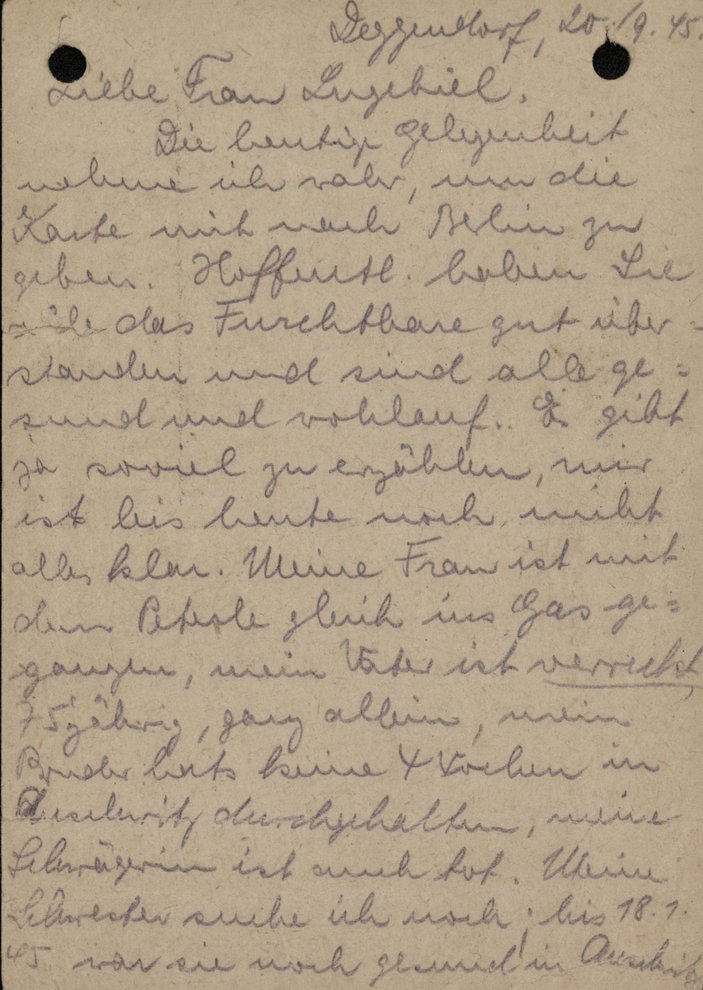 Deggendorf, 20./9.45.
Liebe Frau Lugebiel.
Die heutige Gelegenheit
nehme ich wahr, um die
Karte mit nach Berlin zu
geben. Hoffentl. haben Sie
das Furchtbare gut über=
standen und sind alle ge=
sund und wohlauf. Es gibt
ja soviel zu erzählen, mir
ist bis heute noch nicht
alles klar. Meine Frau ist mit
dem Peterle gleich ins Gas ge=
gangen, mein Vater ist verreckt,
75jährig, ganz allein, mein
Bruder hats keine 4 Wochen in
Auschwitz durchgehalten, meine
Schwägerin ist auch tot. Meine
Schwester suche ich noch; bis 18.1.
45 war sie noch gesund in Auschwitz